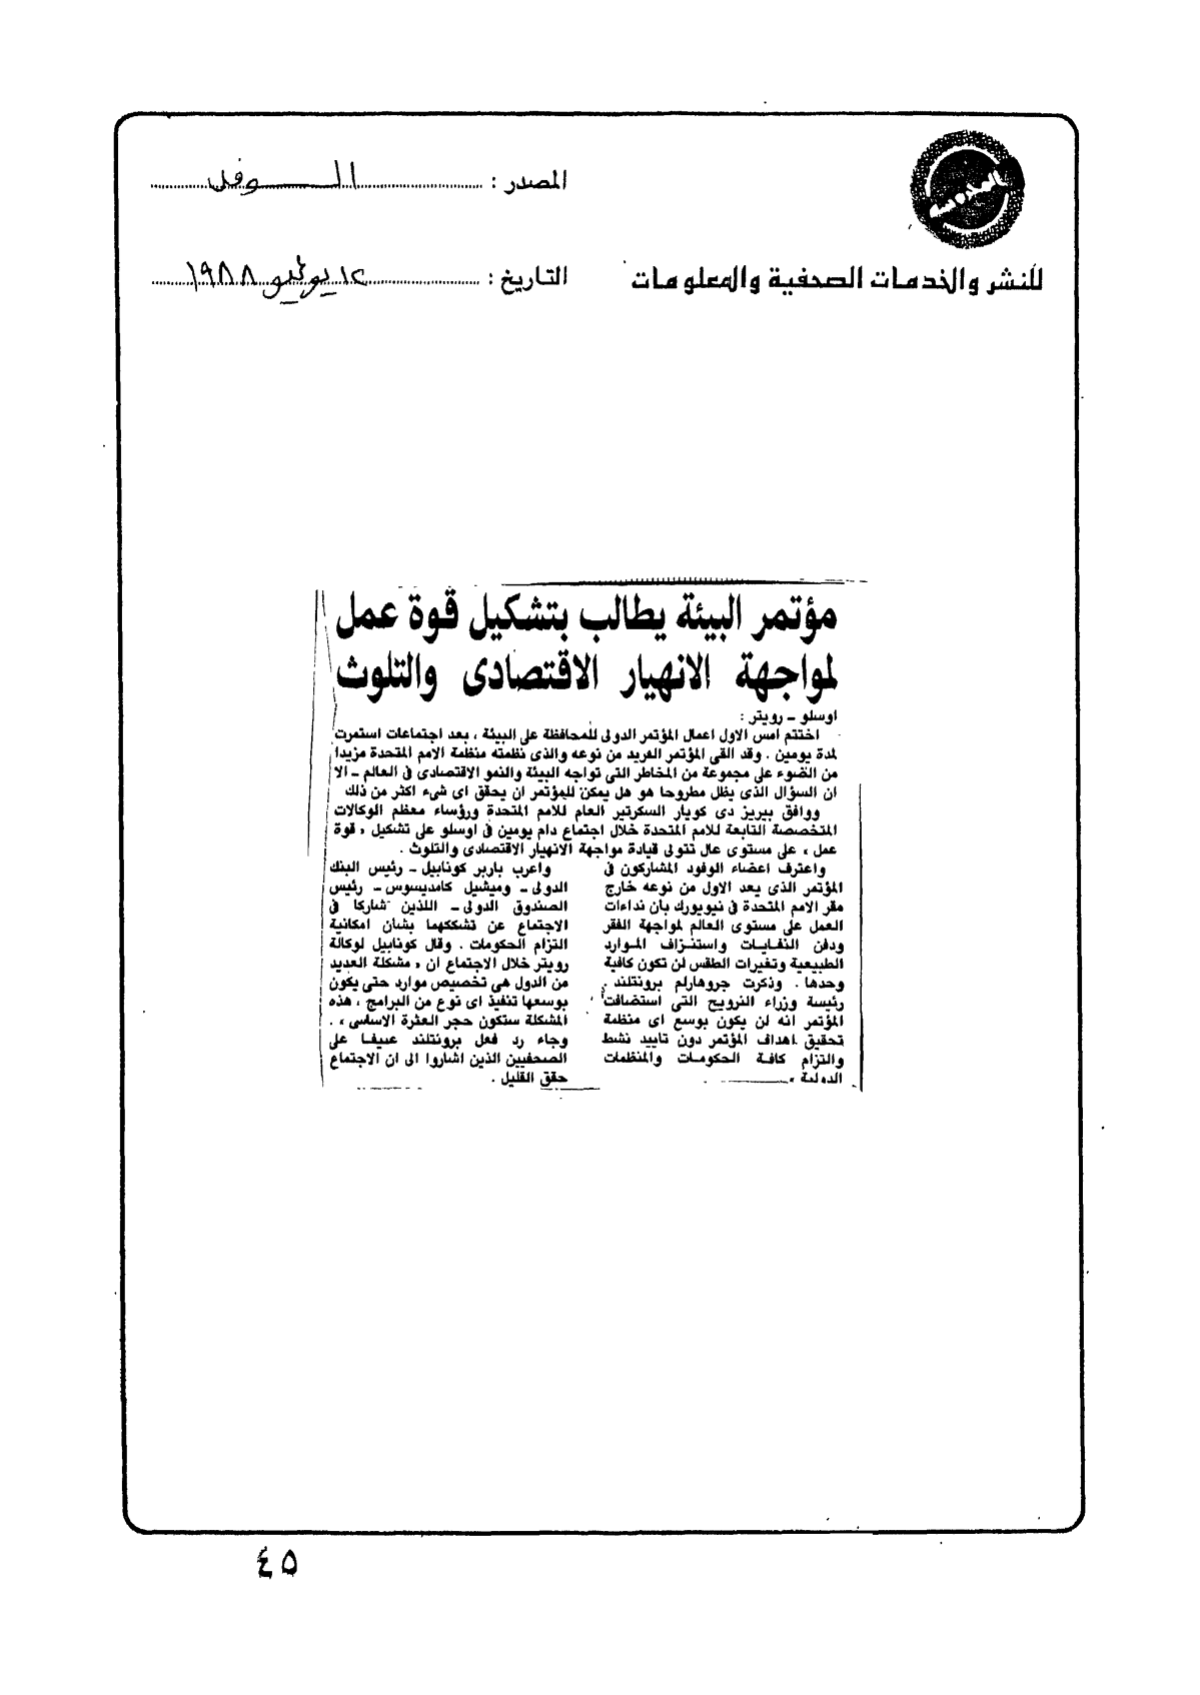 المصدر : الوفد
للنشر والخدمات الصحفية والمعلومات
التاريخ : ١٢ يوليو ١٩٨٨
مؤتمر البيئة يطالب بتشكيل قوة عمل
لمواجهة الانهيار الاقتصادى والتلوث
اوسلو - رويتر :
اختتم امس الاول اعمال المؤتمر الدولى للمحافظة على البيئة ، بعد اجتماعات استمرت
لمدة يومين . وقد القى المؤتمر الفريد من نوعه والذى نظمته منظمة الامم المتحدة مزيدا
من الضوء على مجموعة من المخاطر التى تواجه البيئة والنمو الاقتصادى فى العالم - الا
ان السؤال الذى يظل مطروحا هو هل يمكن للمؤتمر ان يحقق اى شىء اكثر من ذلك
ووافق بيريز دى كويار السكرتير العام للامم المتحدة ورؤساء معظم الوكالات
المتخصصة التابعة للامم المتحدة خلال اجتماع دام يومين فى اوسلو على تشكيل « قوة
عمل » على مستوى عال تتولى قيادة مواجهة الانهيار الاقتصادى والتلوث .
واعترف اعضاء الوفود المشاركون فى
المؤتمر الذى يعد الاول من نوعه خارج
مقر الامم المتحدة فى نيويورك بان نداءات
العمل على مستوى العالم لمواجهة الفقر
ودفن النفايات واستنزاف الموارد
الطبيعية وتغيرات الطقس لن تكون كافية
وحدها . وذكرت جروهارلم برونتلند
رئيسة وزراء النرويج التى استضافت
المؤتمر انه لن يكون بوسع اى منظمة
تحقيق اهداف المؤتمر دون تاييد نشط
والتزام كافة الحكومات والمنظمات
الدولية »
واعرب باربر كونابيل - رئيس البنك
الدولى - وميشيل كامديسوس - رئيس
الصندوق الدولى - اللذين شاركا فى
الاجتماع عن تشككهما بشان امكانية
التزام الحكومات . وقال كونابيل لوكالة
رويتر خلال الاجتماع ان « مشكلة العديد
من الدول هى تخصيص موارد حتى يكون
بوسعها تنفيذ اى نوع من البرامج ، هذه
المشكلة ستكون حجر العثرة الاساسى » .
وجاء رد فعل برونتلند عنيفا على
الصحفيين الذين اشاروا الى ان الاجتماع
حقق القليل .
٤٥